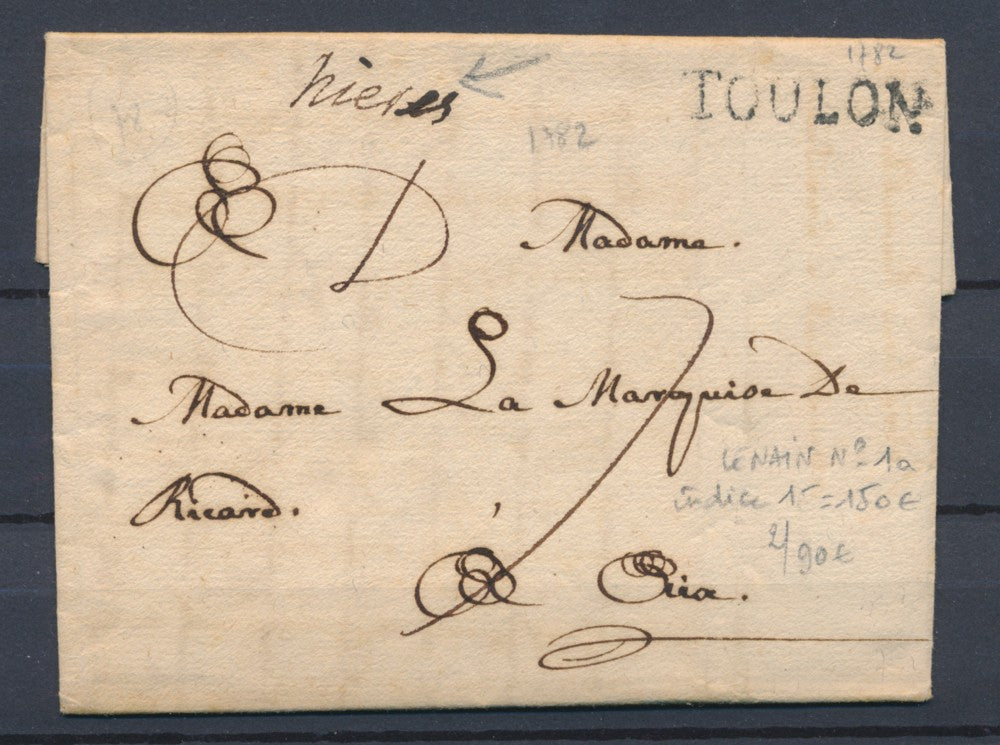 1782
hieres TOULON
1782
Madame.
7
Madame La Marquise De
Ricard.
LENAIN Nº 1a
indice 15 = 150€
90€
A Aix.